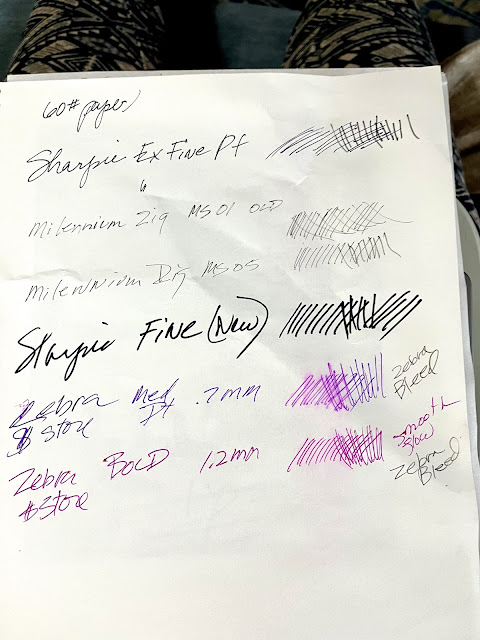 60# paper
Sharpie Ex Fine Pt
Milennium Zig MS01 OLD
Milennium Zig MS05
Sharpie Fine (New)
Zebra Med Pt .7mm
$ Store
Zebra Bleed
Zebra BOLD 1.2mm
$ Store
smooth
flow
Zebra Bleed